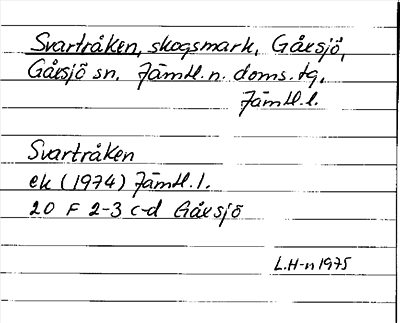 Svartråken, skogsmark, Gåxsjö,
Gåxsjö sn. Jämtl. n. doms. tg,
Jämtl. l.
Svartråken
ek (1974) Jämtl. l.
20 F 2-3 c-d Gåxsjö
L.H-n 1975